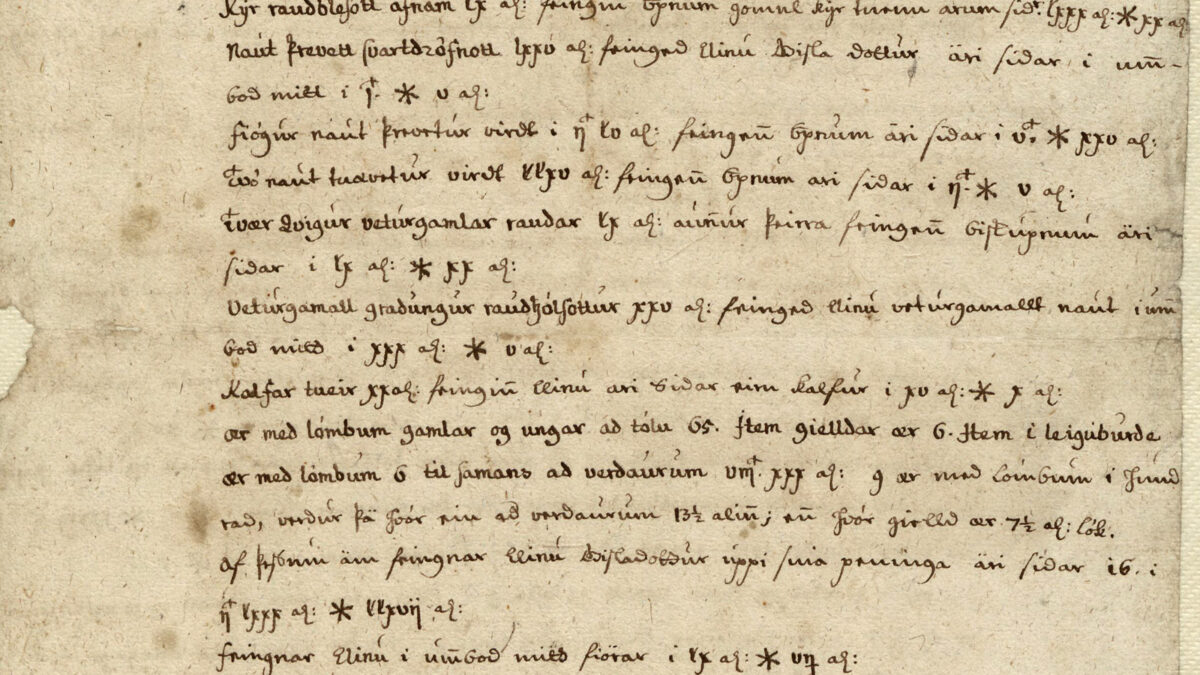 Kyr raudblesott afnam lx al: feingin bpnum gomul kyr tuenn arum sidr. lxxx al: * xx al
Naut þrevett svartdröfnott lxxv al: feinged Elinu Gisla dottur äri sidar i um̄-
bod mitt i * v al:
fiögur naut þrevetur virdt i lv al: feingen̄ bpnum äri sidar i * xxv al:
Tvö naut tuævetur virdt llxv al: feingen̄ bpnum ari sidar i * v al:
Tvær qvigur veturgamlar raudar lx al: aun̄ur þeirra feingen̄ biskupnum äri
sidar i lx al: * xx al:
Veturgamall gradungur raudhiölsottur xxv al: feinged Elinu veturgamallt naut i um̄
bod mitt i xxx al: * v al:
Kalfar tueir xx al: feingin̄ Elinu ari sidar eirn kalfur i xv al: * x al:
ær med lömbum gamlar og ungar ad tölu 65. Item gielldar ær 6. Item i leiguburde
ær med lömbum 6 til samans ad verdaurum xxx al: 9 ær med lömbum i hund
rad, verdur þä hvör ein ad verdaurum 13½ alin̄; en̄ hvör gielld ær 7½ al: lök.
Af þeßum äm feingnar Elinu Gisladottur uppi sina peninga äri sidar 16. i
lxxx al: * llxvij al:
feingnar Elinu i um̄bod mitt fiörar i lx al: * al: